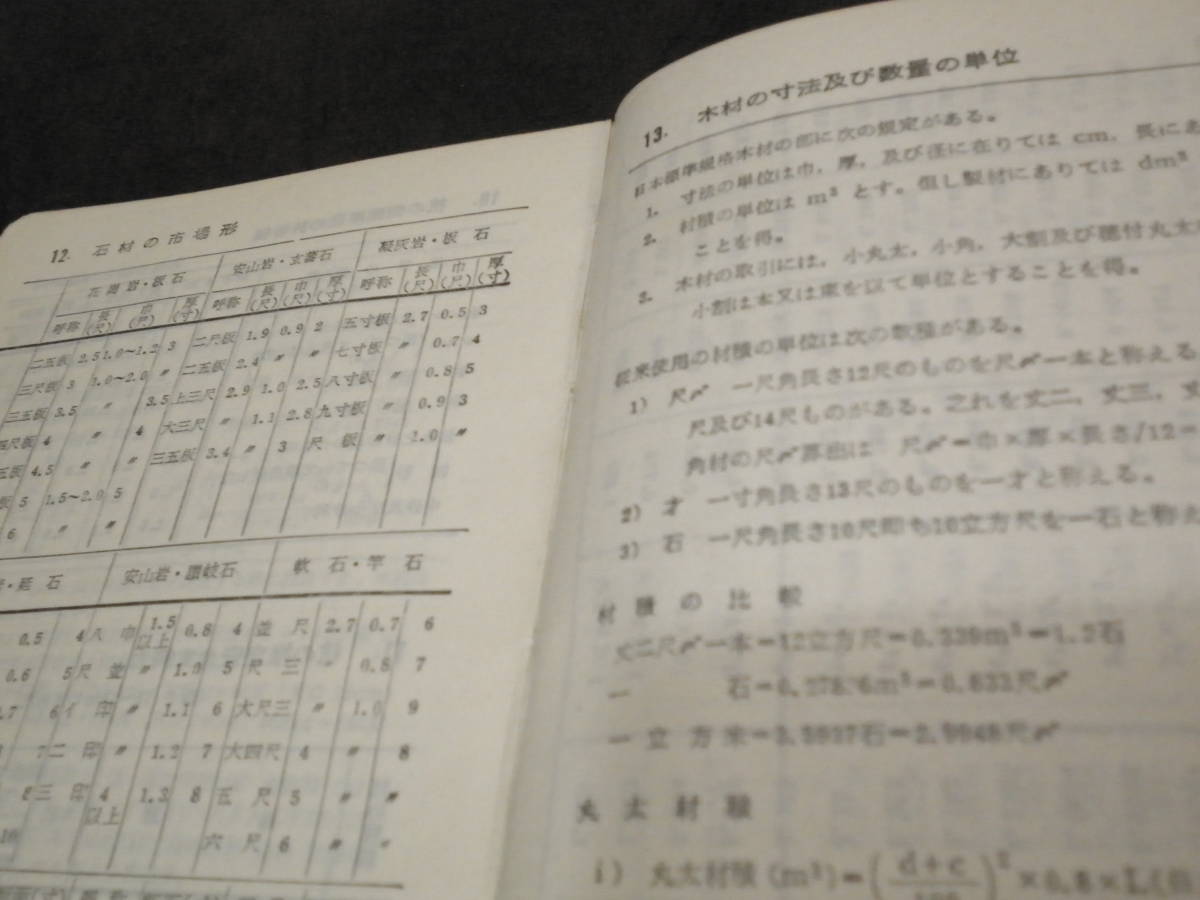 12. 石材の市場形
花崗岩・板石 安山岩・丈善石 凝灰岩・板石
呼称 長(尺) 巾(尺) 厚(寸) 呼称 長(尺) 巾(尺) 厚(寸) 呼称 長(尺) 巾(尺) 厚(寸)
二五板 2.5 1.0~1.2 3 二尺板 1.9 0.9 2 五寸板 2.7 0.5 3
三尺板 3 1.0~2.0 〃 二五板 2.4 〃 〃 七寸板 〃 0.7 4
三五板 3.5 〃 3.5 上三尺 2.9 1.0 2.5 八寸板 〃 0.8 5
四尺板 4 〃 4 大三尺 〃 1.1 2.8 九寸板 〃 0.9 3
五板 4.5 〃 〃 三五板 3.4 〃 3 尺板 〃 1.0 〃
板 5 1.5~2.0 5
6 〃 〃
・延石 安山岩・讃岐石 軟石・竿石
0.5 4 八巾 1.5以上 0.8 4 並尺 2.7 0.7 6
0.6 5 尺並 〃 1.0 5 尺三 〃 0.8 7
0.7 6 イ印 〃 1.1 6 大尺三 〃 1.0 9
7 二印 〃 1.2 7 大四尺 4 〃 8
8 三印 4以上 1.3 8 五尺 5 〃 〃
10 六尺 6 〃 〃
13. 木材の寸法及び数量の単位
日本標準規格木材の部に次の規定がある。
1. 寸法の単位は巾,厚,及び径に在りては cm,長にあ
2. 材積の単位は m³ とす。但し製材にありては dm³
ことを得。
3. 木材の取引には,小丸太,小角,大割及び穂付丸太
小割は本又は束を以て単位とすることを得。
従来使用の材積の単位は次の数種がある。
1) 尺〆 一尺角長さ12尺のものを尺〆一本と称える
尺及び14尺ものがある。之れを丈二,丈三,丈
角材の尺〆算出は 尺〆=巾×厚×長さ/12=
2) 才 一寸角長さ13尺のものを一才と称える。
3) 石 一尺角長さ10尺即ち10立方尺を一石と称え
材積の比較
丈二尺〆一本=12立方尺=0.339m³=1.2石
一 石=0.2786m³=0.833尺〆
一立方米=3.5937石=2.9948尺〆
丸太材積
i) 丸太材積(m³)=(d+c/)²×0.8×L